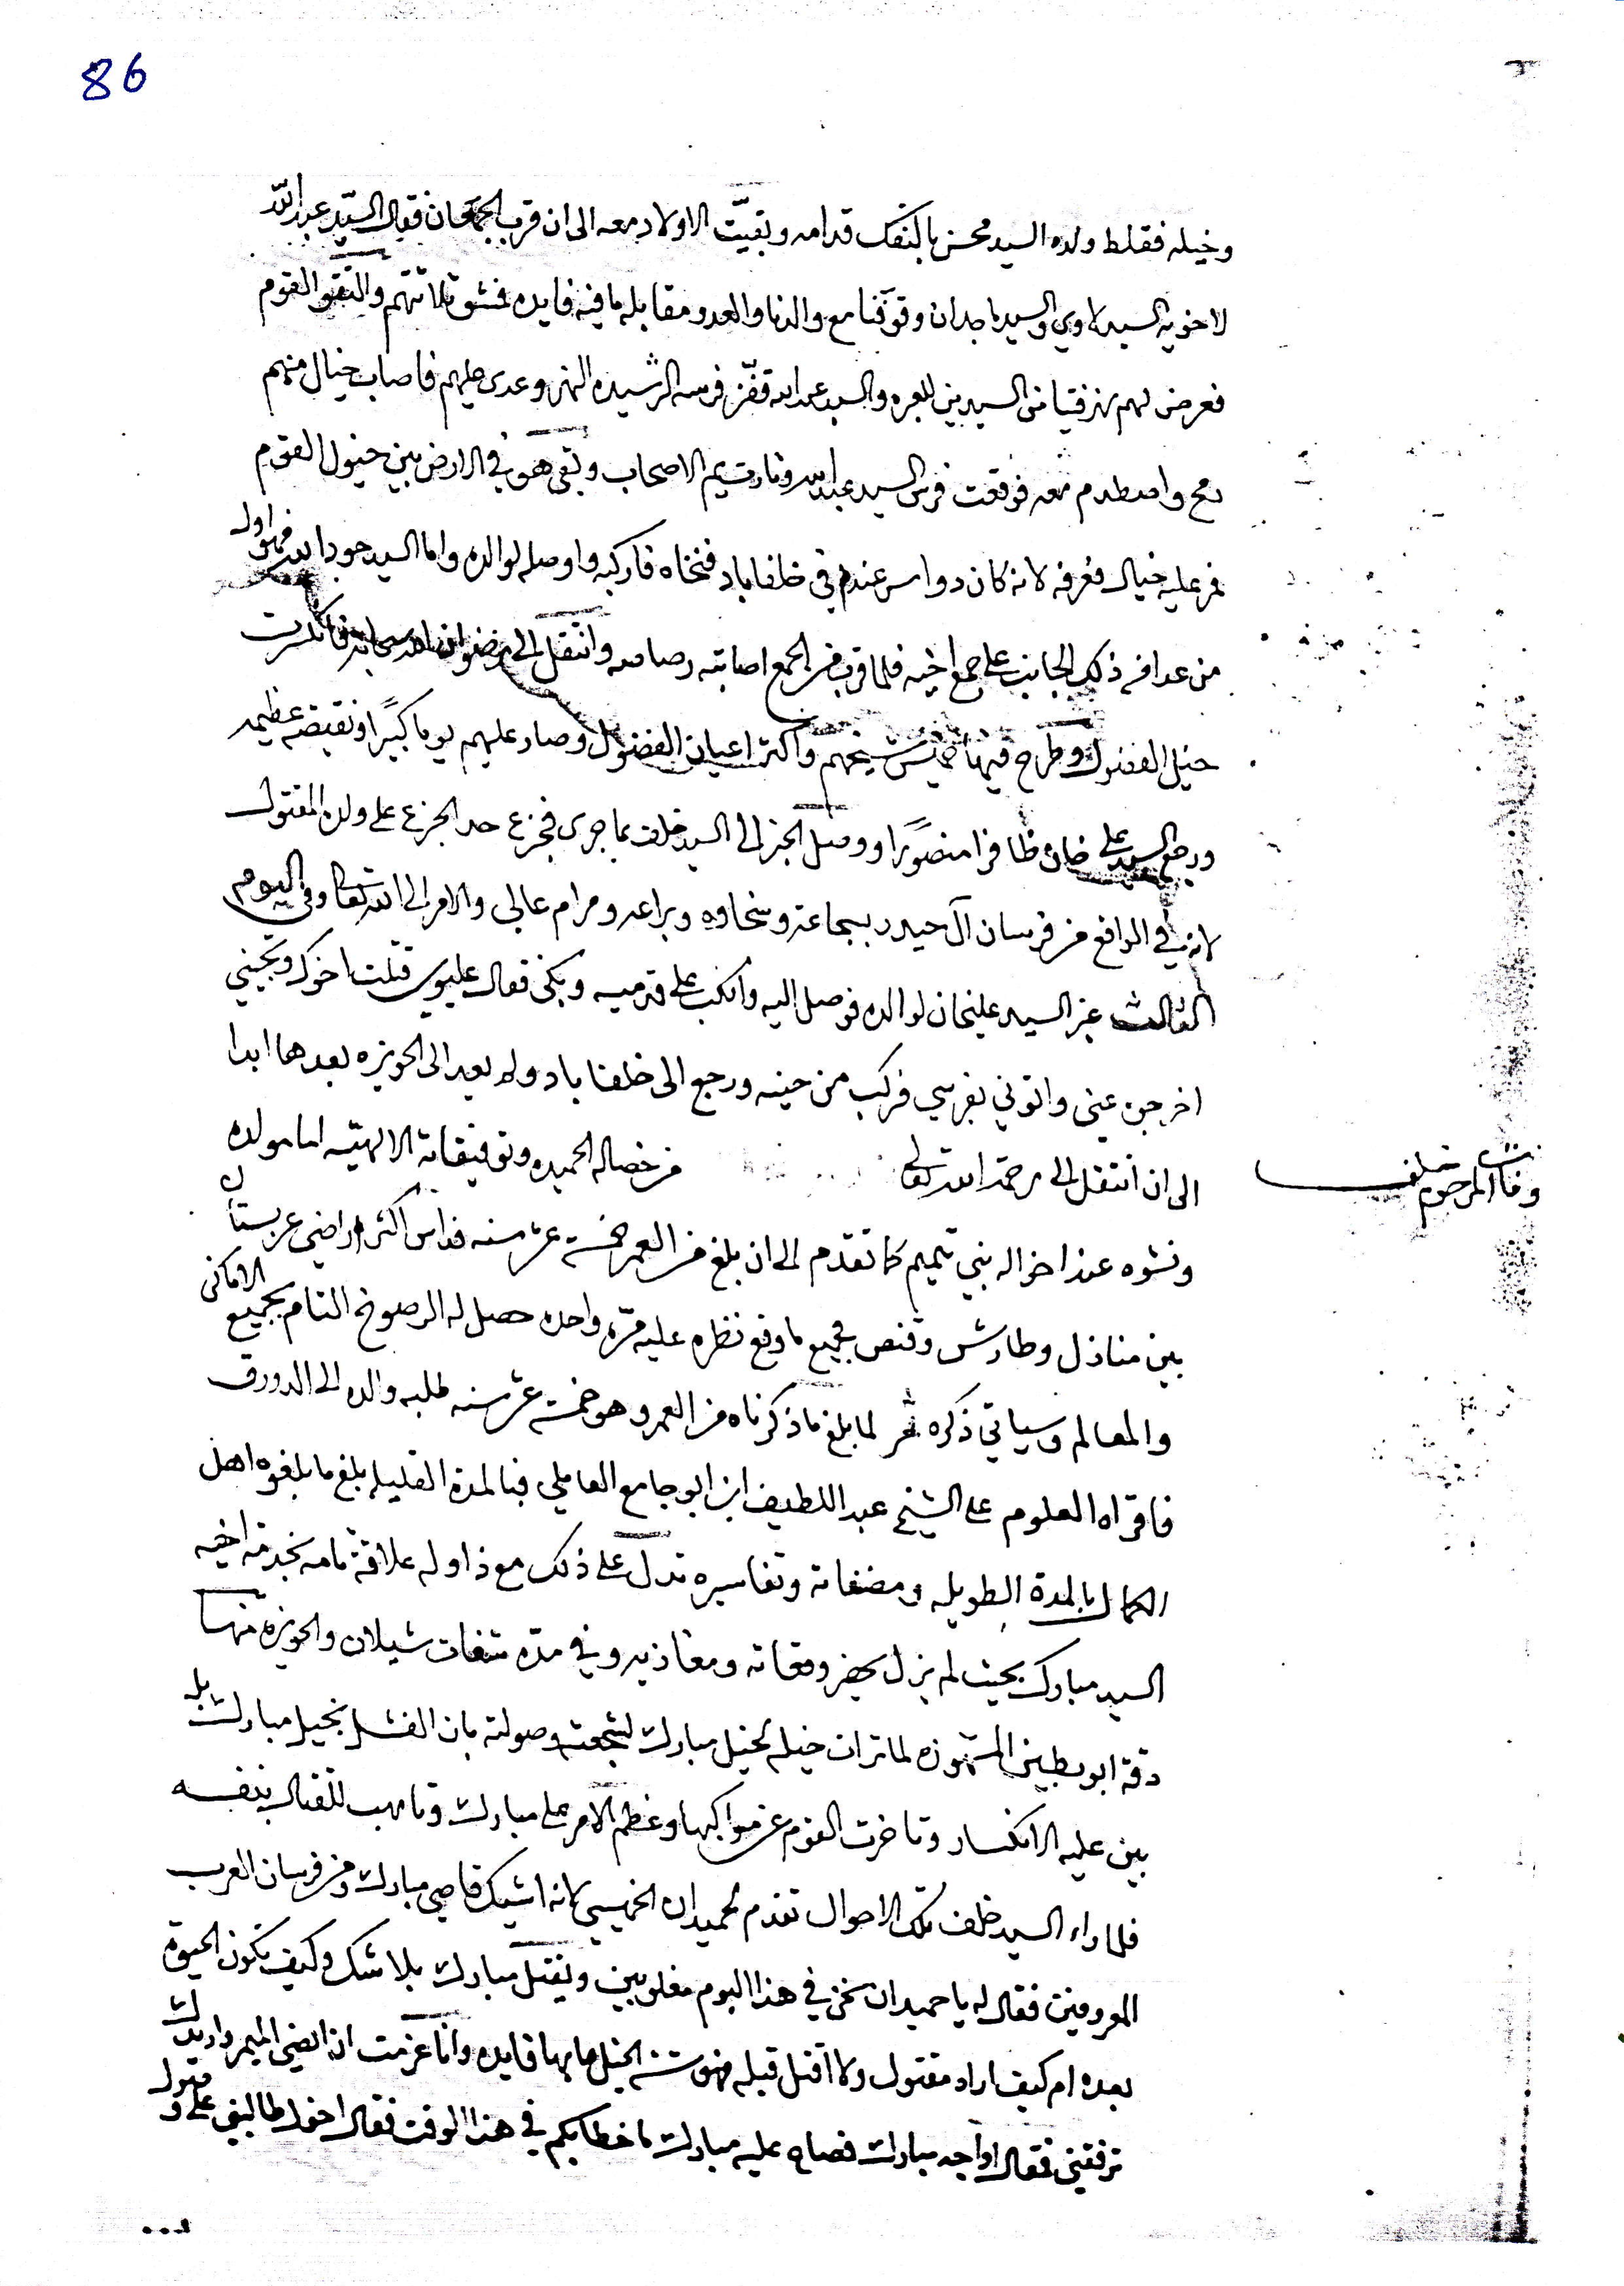 86
وخيله فقلط ولده السيد محسن بالتفك قدامه وبقيّت الاولاد معه الى ان قرب الجمعان فقال السيّد عبدالله
لاخويه السيد لاوي والسيد ماجد ان وقوفنا مع والدنا والعدو مقابله ما فيه فايده فمشو ثلاثتهم والتقو القوم
فعرض لهم نهر السيدين للعبره والسيد عبدالله قفّز فرسه الرشيده النهر وعدى عليهم فاصاب خيال منهم
رمح واصطدم معه فوقعت فرس السيد عبدالله الاصحاب وبقى هو في الارض بين خيول القوم
فمر عليه خيال فعرفه لانه كان دواس عندهم في خلفاباد فنخاه فاركبه واوصله لوالده واما السيد جودالله فهو اول
من عدا في ذلك الجانب على جمع اخيه فلما قرب من الجمع اصابته رصاصه وانتقل الى رضوان الله سبحانه فانكسرت
خيل الفضول وطرح فيها شيخهم واكثر اعيان الفضول وصار عليهم يوما كبيرًا ونقيضه عظيمه
ورجع السيد علي خان ظافرا منصورًا ووصل الخبر الى السيد خلف بما جرى فجزع حد الجزع على ولده المقتول
لانه في الواقع من فرسان آل حيدر بشجاعة وسخاوه وبراعه ومرام عالي والامر الى الله تعالى وفي اليوم
الثالث عبر السيد عليخان لوالده فوصل اليه وانكب على قدميه وبكى فقال عليوي قتلت اخوك وتجيني
اخرجن عني واتوني بفرسي فركب من حينه ورجع الى خلفاباد ولم يعد الى الحويزه بعدها ابدا
الى ان انتقل الى رحمة الله تعالى من خصاله الحميده وتوفيقاته الالهيّه اما مولده
وفات المرحوم خلف
ونشوه عند اخواله بني تميم كما تقدم الى ان بلغ من العمر خمسة عشر سنه فداس اكثر اراضي عربستان
بين منازل وطارش وقنص فجميع ما وقع نظره عليه مرّه واحده حصل له الرصوخ التام بجميع الاماكن
والمعالم وسياتي ذكره ثم لما بلغ ما ذكرناه من العمر وهو خمسة عشر سنه طلبه والده الى الدورق
فاقراه العلوم على الشيخ عبد اللطيف ابن ابو جامع العاملي فبالمدة القليله بلغ ما بلغوه اهل
الكمال بالمدة الطويله ومصنفاته وتفاسيره تدل على ذلك مع ذا وله علاقة تامه بخدمة اخيه
السيد مبارك بحيث لم يزل يحضر وقعاته ومغازيه وفي مدّه شيلان والحويزه منها
دقة ابو المشهوره لما تران خيله بخيل مبارك وصولته بان الفشل بخيل مبارك بل
بين عليه الانكسار وتاخرت القوم عن مواكبها وعظم الامر على مبارك وتاهب للقتال بنفسه
فلما راء السيد خلف تلك الاحوال تقدم لحميدان الخميسي لانه مبارك ومن فرسان العرب
المعروفين فقال له يا حميدان نحن في هذا اليوم مغلوبين ويقتل مبارك بلا شك وكيف تكون الحيوة
بعده ام كيف اراه مقتول ولا اقتل قبله الخيل ما بها فايده وانا عزمت ان امضي اليهم واريدك
ترفقني فقال اواجه مبارك فصاح عليه مبارك ما خطابكم في هذا الوقت فقال اخوك طالبني على